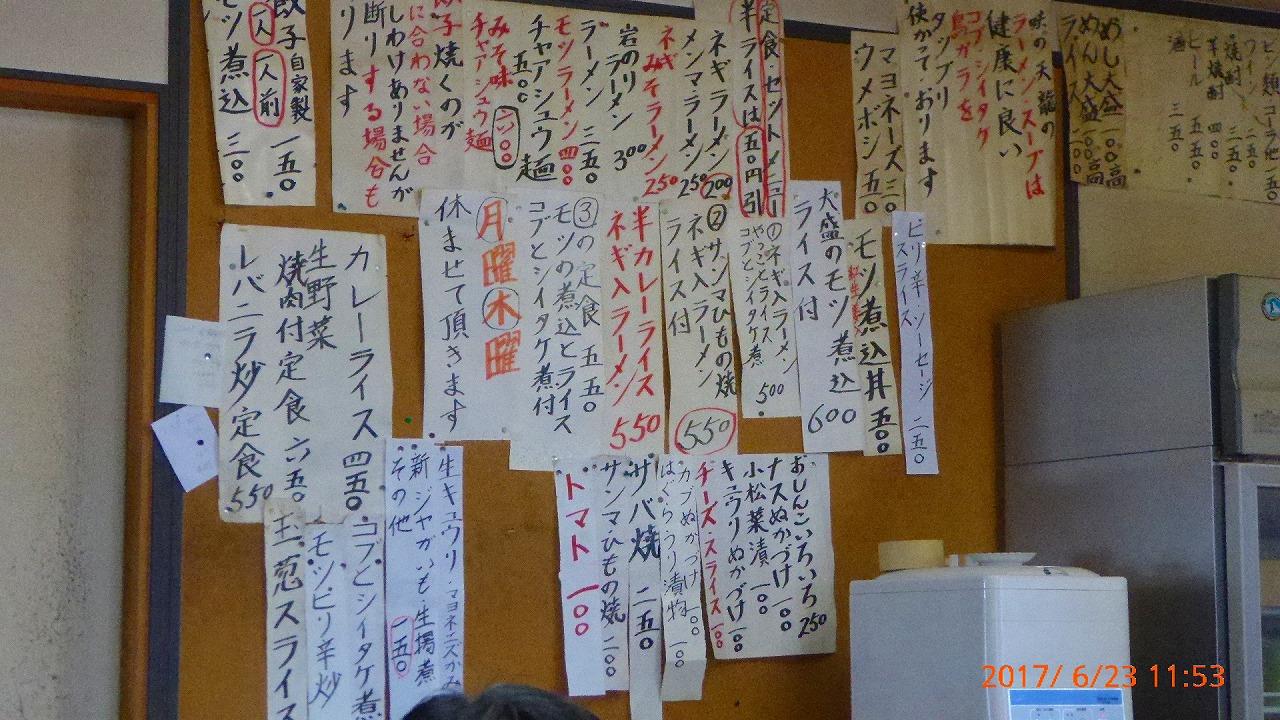 ビール 五五〇
羊焼酎 四〇〇
焼酎 二五〇
めし大盛 一〇〇高
めん大盛 一〇〇高
味の天龍の
ラーメン・スープは
健康に良い
コブ・シイタケ
鳥ガラを
タップリ
使かって おります
マヨネーズ 三〇
ウメボシ 五〇
定食・セットメニュー
半ライスは 五〇円引
ネギラーメン 200
メンマラーメン 250
ネギみそラーメン 250
岩のりラーメン 300
ラーメン 三五〇
モツラーメン 四〇〇
チャアシュウ麺
五〇〇
みそ味
チャアシュウ麺
六〇〇
餃子焼くのが
に合わない場合
しわけありませんが
断りする場合も
ります
餃子 自家製 一五〇
一人前
モツ煮込 三〇〇
ピリ辛・ソーセージ 二五〇
スライス
モツ煮込丼 五〇〇
大盛のモツ煮込 600
ライス付
①ネギ入ラーメン
やっことライス
コブとシイタケ煮 500
②サンマひもの焼
ネギ入ラーメン
ライス付 550
半カレーライス
ネギ入ラーメン 550
③の定食 五五〇
モツの煮込とライス
コブとシイタケ煮付
月曜木曜
休ませて頂きます
カレーライス 四五〇
生野菜
焼肉付定食 六五〇
レバニラ炒定食 550
おしんこいろいろ 250
ナスぬかづけ 一〇〇
小松菜漬 一〇〇
キュウリぬかづけ 一〇〇
チーズ・スライス 一〇〇
カブぬかづけ 一〇〇
はぐらうり漬物 一〇〇
サバ焼 二五〇
サンマひもの焼 二〇〇
トマト 一〇〇
生キュウリ・マヨネーズかみ
新ジャがいも・生揚煮
その他 一五〇
コブとシイタケ煮
モツピリ辛炒
玉葱スライス
2017/ 6/23 11:53